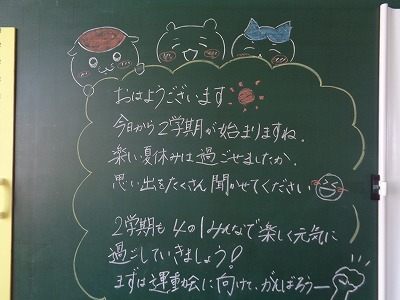 おはようございます
今日から2学期が始まりますね.
楽しい夏休みは過ごせましたか.
思い出をたくさん聞かせてください
2学期も 4の1みんなで楽しく元気に
過ごしていきましょう!
まずは運動会に向けて、がんばろうー